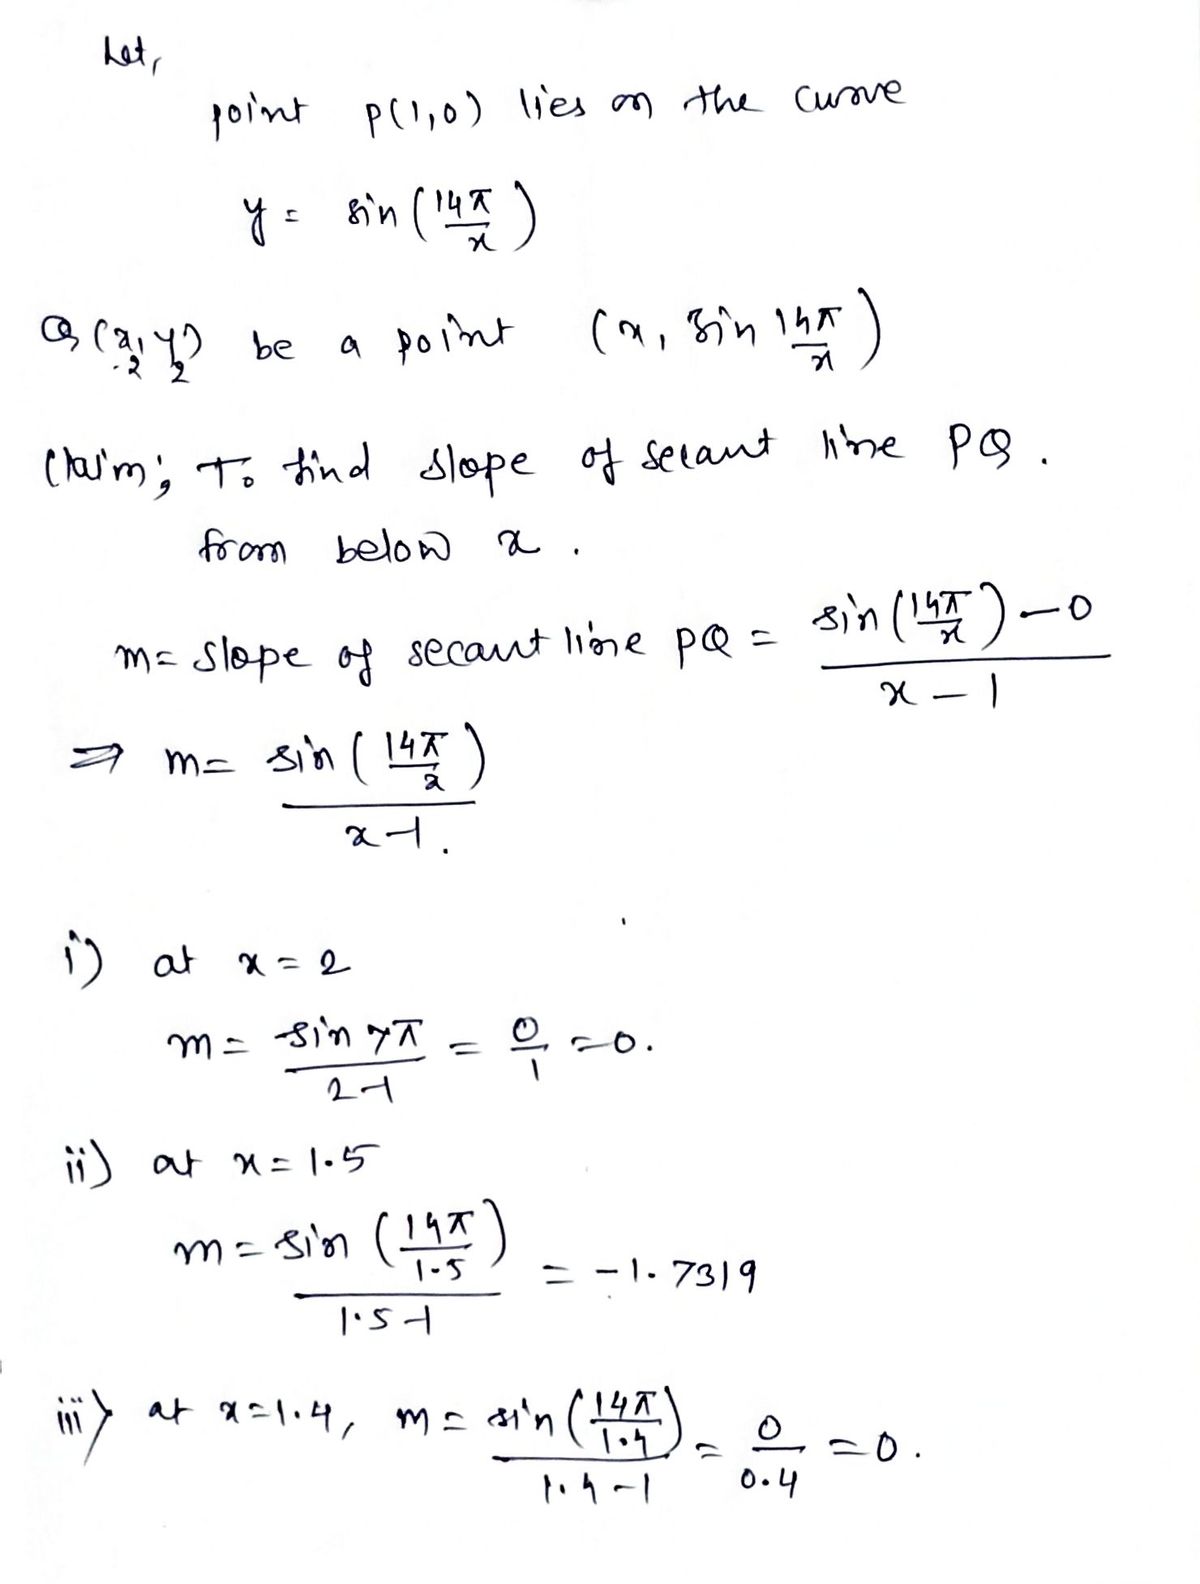 Let,
point P(1,0) lies on the curve
y = sin(14π/x)
Q(x₂,y₂) be a point (x, sin 14π/x)
Claim; To find slope of secant line PQ.
from below x.
m = slope of secant line PQ = (sin(14π/x) - 0)/(x - 1)
⇒ m = sin(14π/x)/(x-1).
i) at x = 2
m = sin 7π/(2-1) = 0/1 = 0.
ii) at x = 1.5
m = sin(14π/1.5)/(1.5-1) = -1.7319
iii) at x=1.4, m = sin(14π/1.4)/(1.4-1) = 0/0.4 = 0.